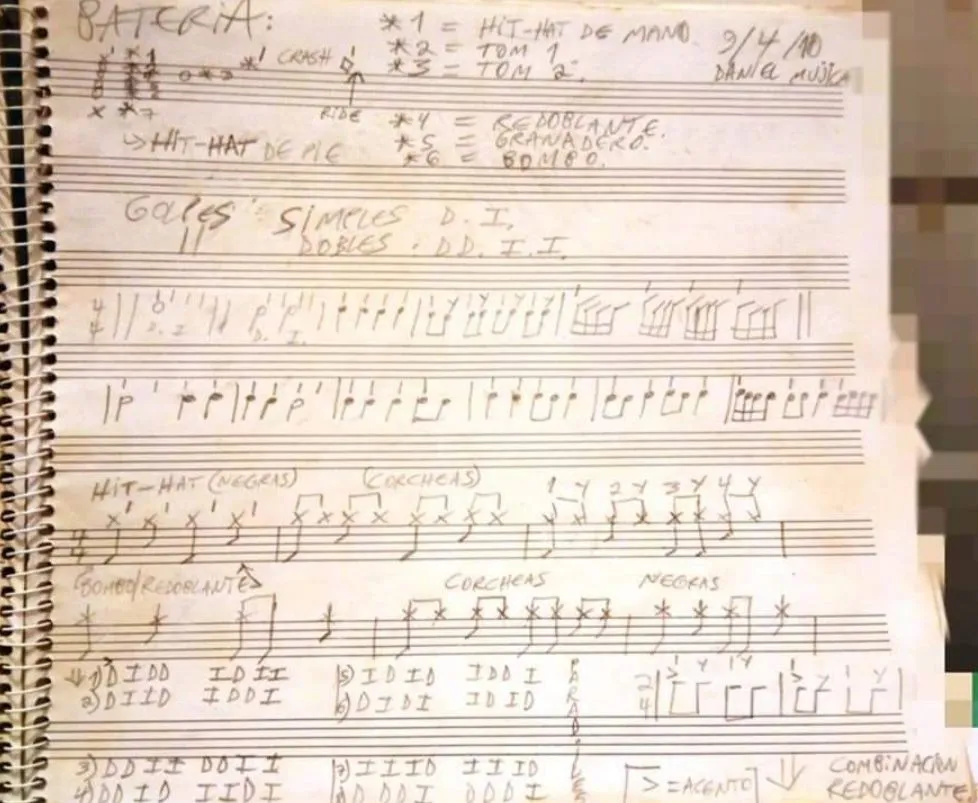 BATERIA:
*1 = HIT-HAT DE MANO
*2 = TOM 1
*3 = TOM 2.
9/4/10
DANIEL MUJICA
CRASH
RIDE
*7
→HIT-HAT DE PIE
*4 = REDOBLANTE.
*5 = GRANADERO.
*6 = BOMBO.
GOLPES: SIMPLES D. I.
" DOBLES: DD. I.I.
4/4
D. I D. I.
HIT-HAT (NEGRAS) (CORCHEAS)
1 Y 2 Y 3 Y 4 Y
4/4
BOMBO/REDOBLANTE CORCHEAS NEGRAS
1) D I D D I D I I
2) D I I D I D D I
3) D D I I D D I I
4) D D I D I I D I
5) I D I D I D D I
6) D I D I I D I D
7) I I I D I I I D
2/4
1 Y 1 Y
> = ACENTO
COMBINACION
REDOBLANTE